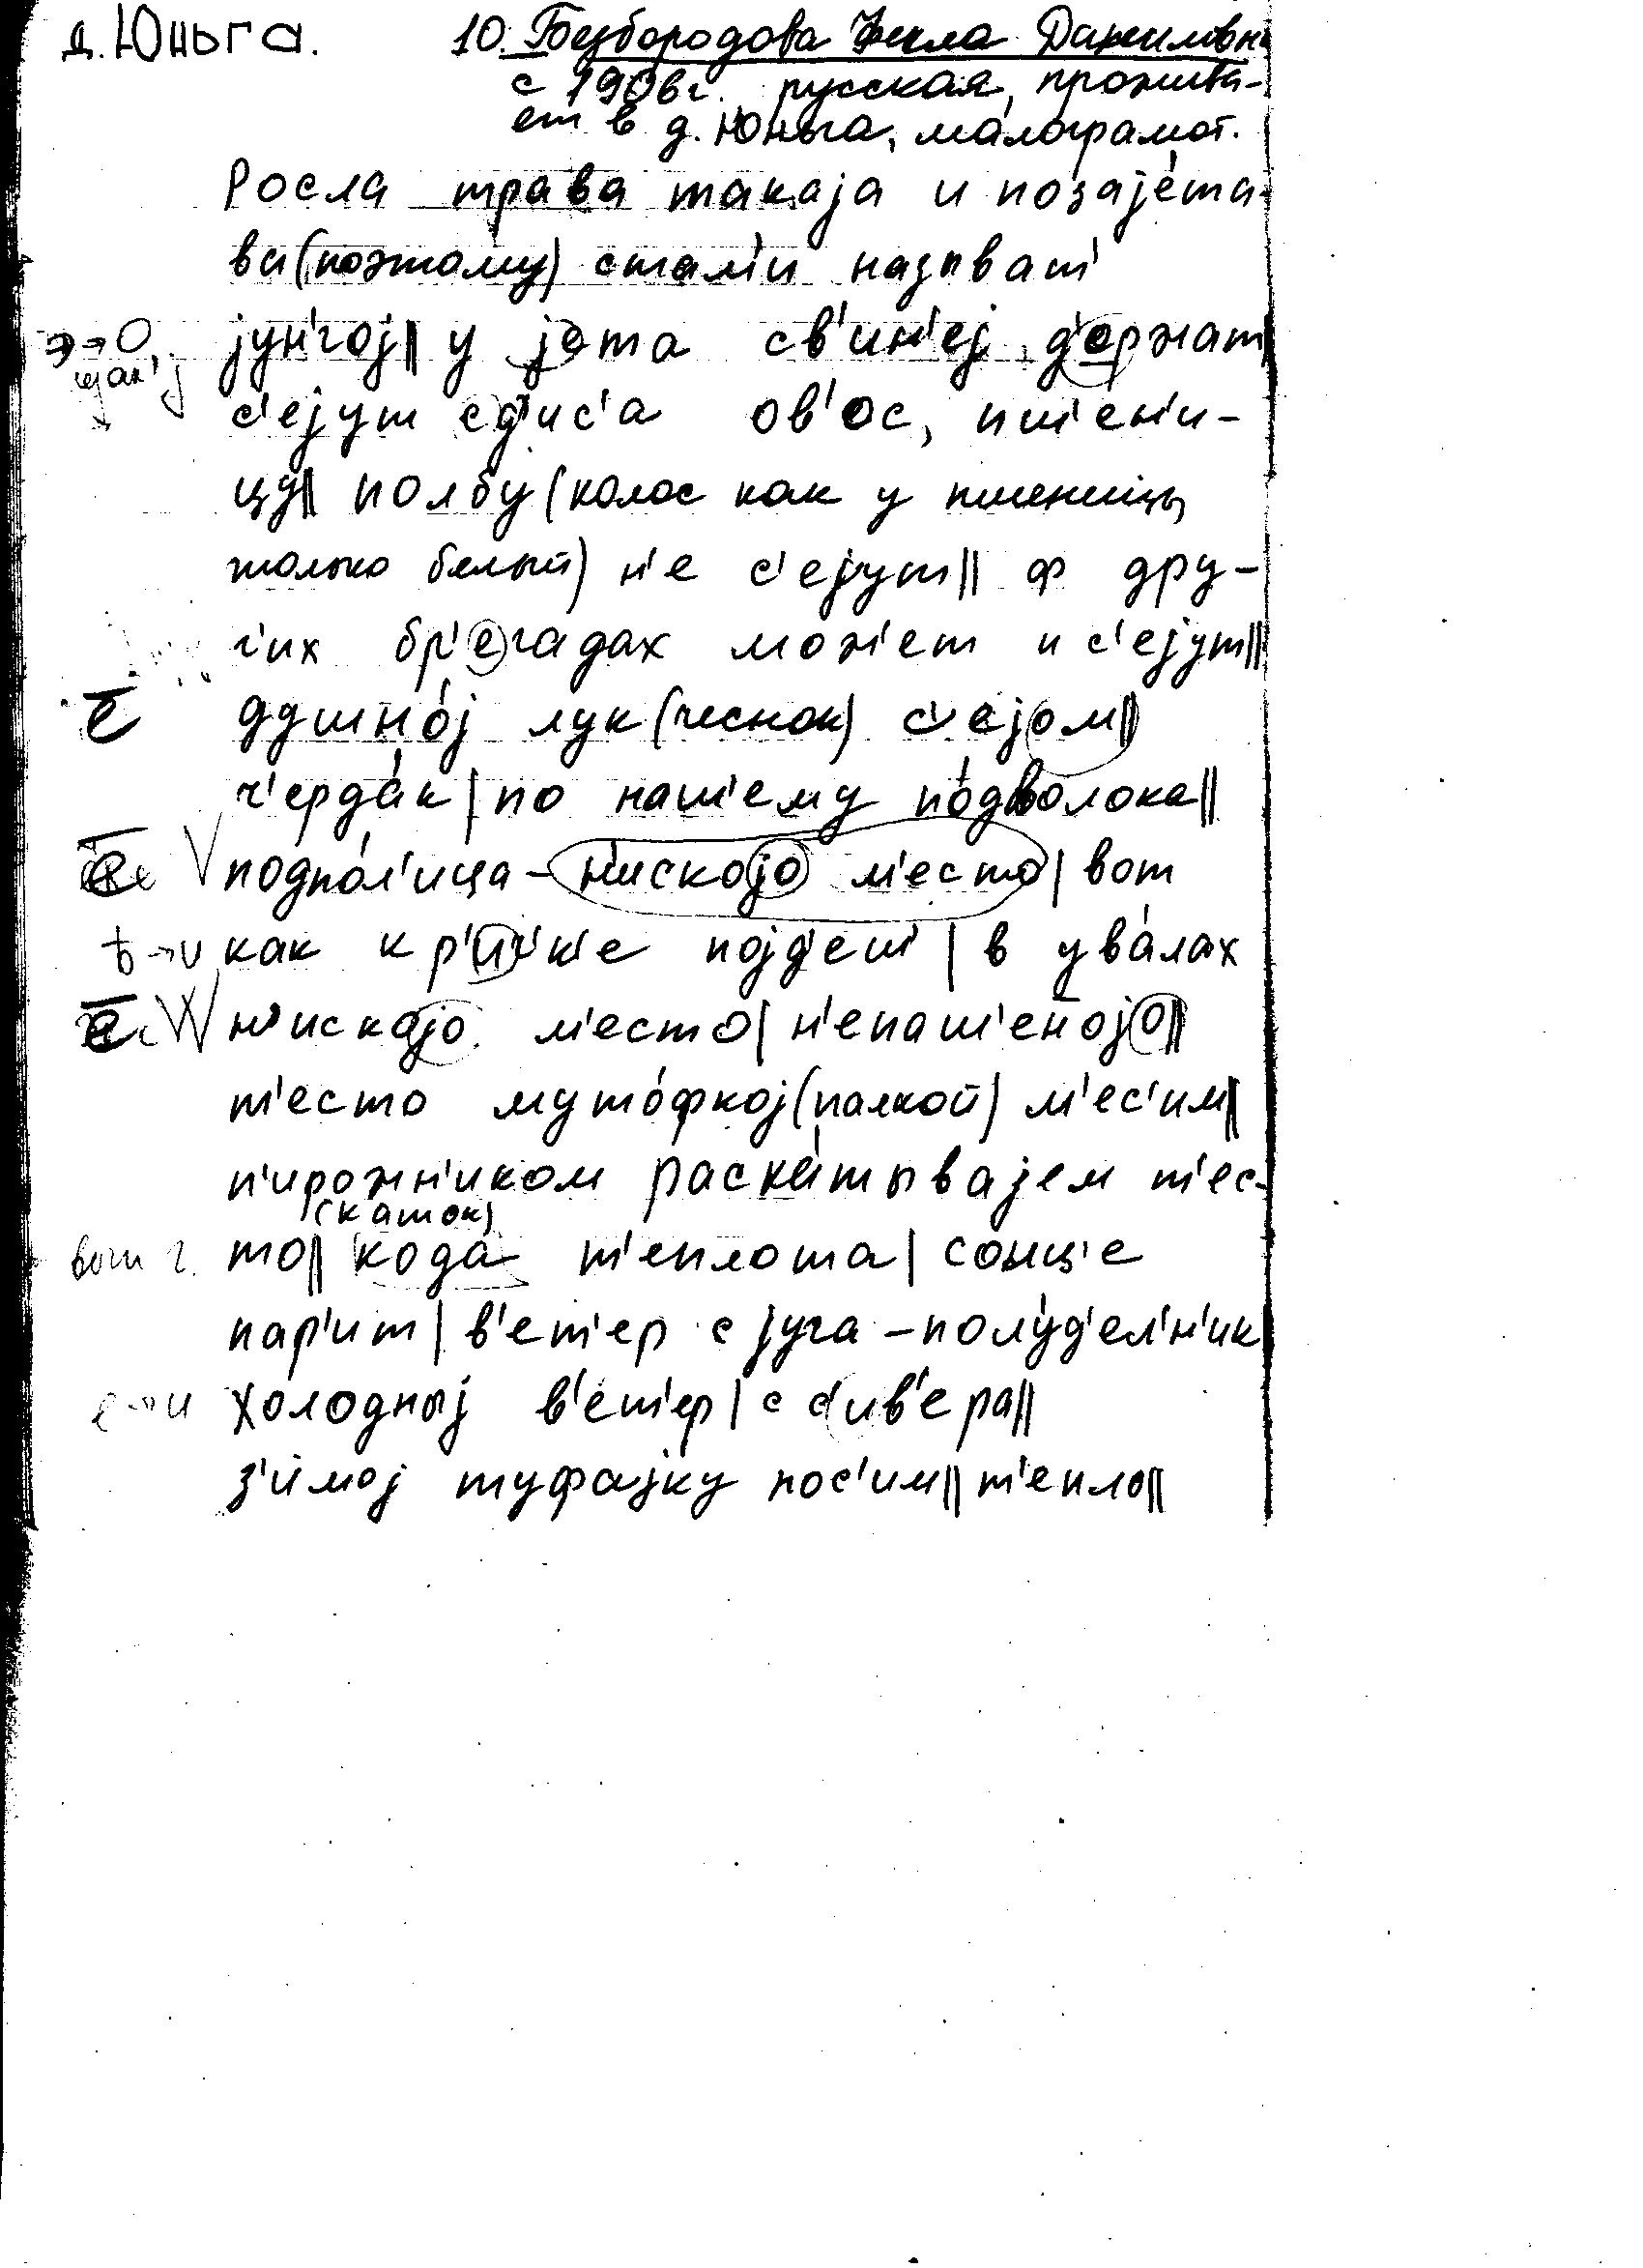 д. Юньга.
10. Безбородова Фекла Даниловна
с 1906 г. русская, прожива-
ет в д. Юньга, малограмот.
Росла трава такаја и позаје́та-
ва (поэтому) стал'и называт'
јун'гој|| у јета св'ин'еј д'оржат|
э→о
с'ејут с'а ов'ос, пш'ен'и-
цу|| полбу (колос как у пшеницы
только белый) н'е с'ејут|| ф дру-
г'их бр'егадах мож'ет и с'ејут||
ē душно́ј лук (чеснок) с'ејом||
ч'ерда́к | по наш'ему по́дволока||
подпо́л'ица - н'искојо м'есто | вот
ѣ→и как к р'ич'к'е појд'еш' | в ува́лах
н'искајо м'есто | н'епаш'енојо||
т'есто муто́фкој (палкой) м'ес'им||
п'ирожн'иком раска́тывајем т'ес-
(каток)
то|| кода́ т'еплота | сонц'е
пар'ит | в'ет'ер с југа - полу́д'ел'н'ик|
е→и холодныј в'е́т'ер | с с'ив'ера||
з'имој туфајку нос'им|| т'епло||